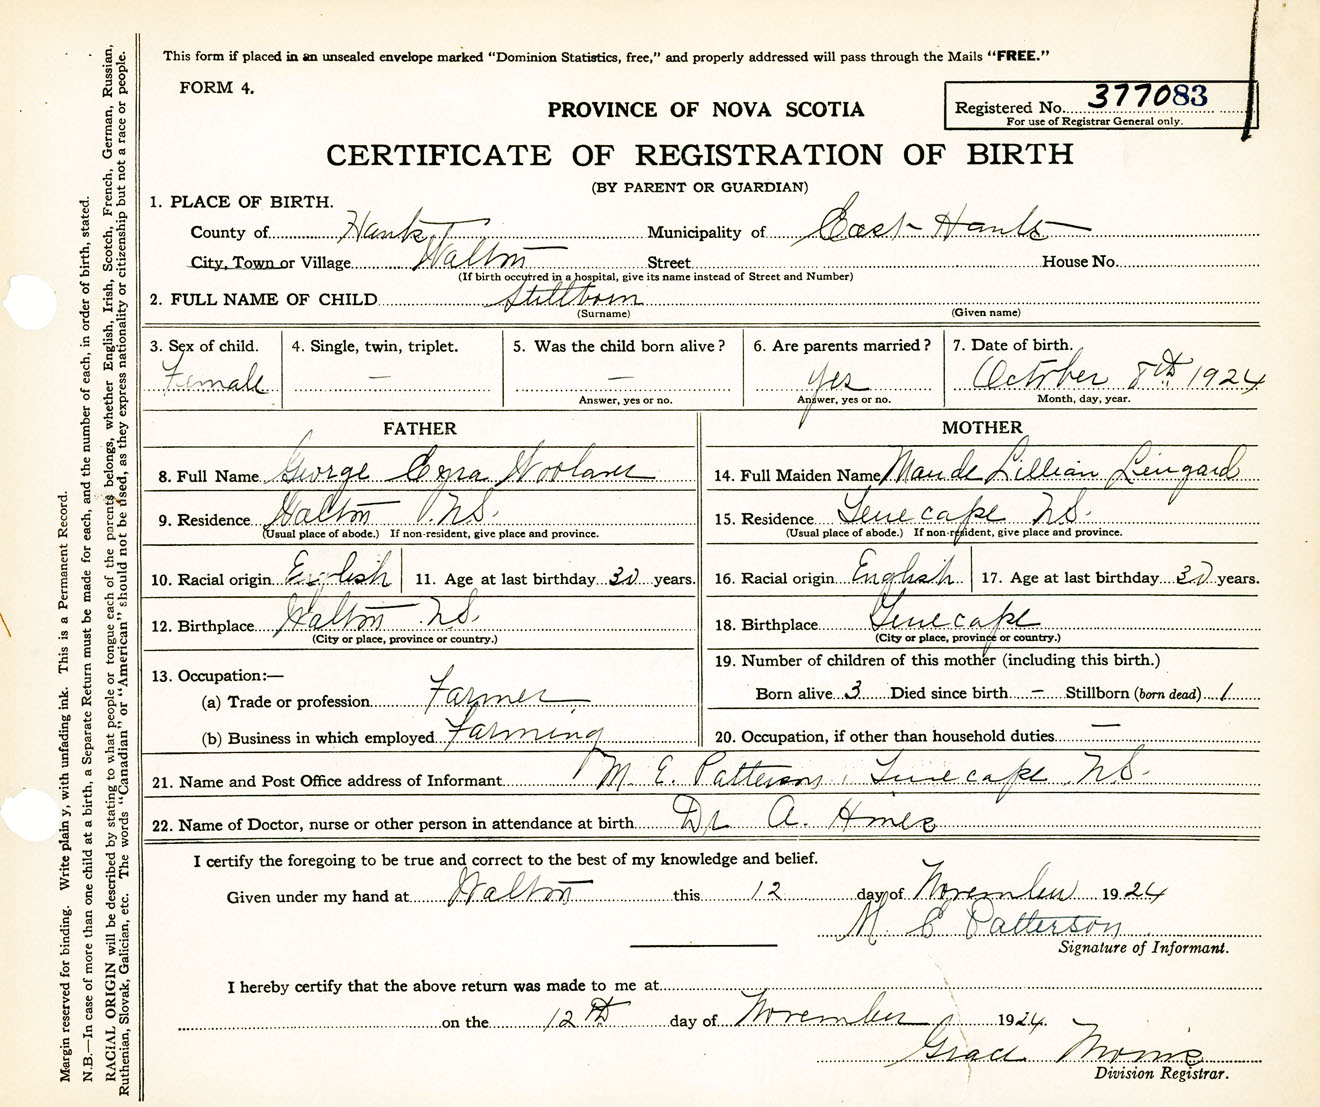 This form if placed in an unsealed envelope marked "Dominion Statistics, free," and properly addressed will pass through the Mails "FREE."
FORM 4.
Registered No. 377083
For use of Registrar General only.
PROVINCE OF NOVA SCOTIA
CERTIFICATE OF REGISTRATION OF BIRTH
(BY PARENT OR GUARDIAN)
1. PLACE OF BIRTH.
County of Hants Municipality of East Hants
City, Town or Village Walton Street House No.
(If birth occurred in a hospital, give its name instead of Street and Number)
2. FULL NAME OF CHILD Stillborn
(Surname) (Given name)
3. Sex of child. 4. Single, twin, triplet. 5. Was the child born alive? 6. Are parents married? 7. Date of birth.
Female — — yes October 8th 1924
Answer, yes or no. Answer, yes or no. Month, day, year.
FATHER MOTHER
8. Full Name George Ezra Woolaver 14. Full Maiden Name Maude Lillian Lingard
9. Residence Walton N.S. 15. Residence Tenecape N.S.
(Usual place of abode.) If non-resident, give place and province. (Usual place of abode.) If non-resident, give place and province.
10. Racial origin English 11. Age at last birthday 30 years. 16. Racial origin English 17. Age at last birthday 30 years.
12. Birthplace Walton N.S. 18. Birthplace Tenecape
(City or place, province or country.) (City or place, province or country.)
13. Occupation:— 19. Number of children of this mother (including this birth.)
(a) Trade or profession Farmer Born alive 3 Died since birth – Stillborn (born dead) 1
(b) Business in which employed Farming 20. Occupation, if other than household duties —
21. Name and Post Office address of Informant M. E. Patterson, Tenecape N.S.
22. Name of Doctor, nurse or other person in attendance at birth Dr A. Hines
I certify the foregoing to be true and correct to the best of my knowledge and belief.
Given under my hand at Walton this 12 day of November 1924
M. E Patterson
Signature of Informant.
I hereby certify that the above return was made to me at
on the 12th day of November 1924.
Grace
Division Registrar.
Margin reserved for binding. Write plain y, with unfading ink. This is a Permanent Record.
N.B.—In case of more than one child at a birth, a Separate Return must be made for each, and the number of each, in order of birth, stated.
RACIAL ORIGIN will be described by stating to what people or tongue each of the parents belongs, whether English, Irish, Scotch, French, German, Russian,
Ruthenian, Slovak, Galician, etc. The words "Canadian" or "American" should not be used, as they express nationality or citizenship but not a race or people.